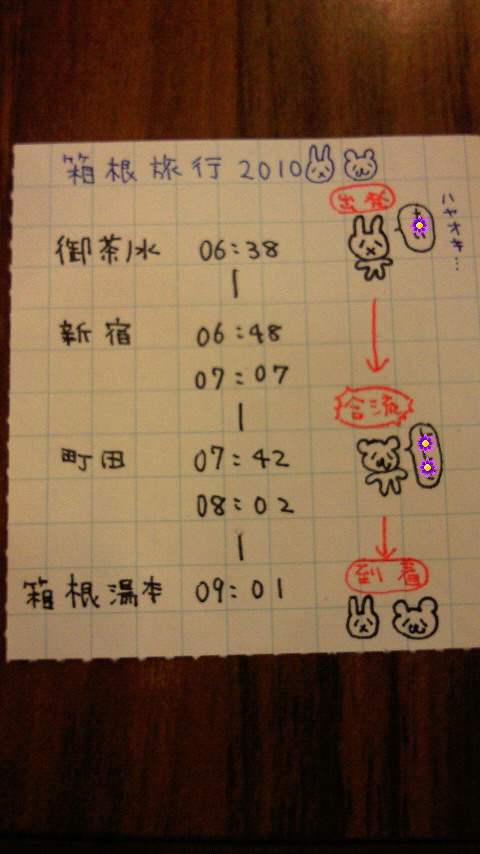 箱根旅行2010
出発
ハヤオキ…
御茶ノ水 06:38
新宿 06:48
07:07
合流
町田 07:42
08:02
到着
箱根湯本 09:01